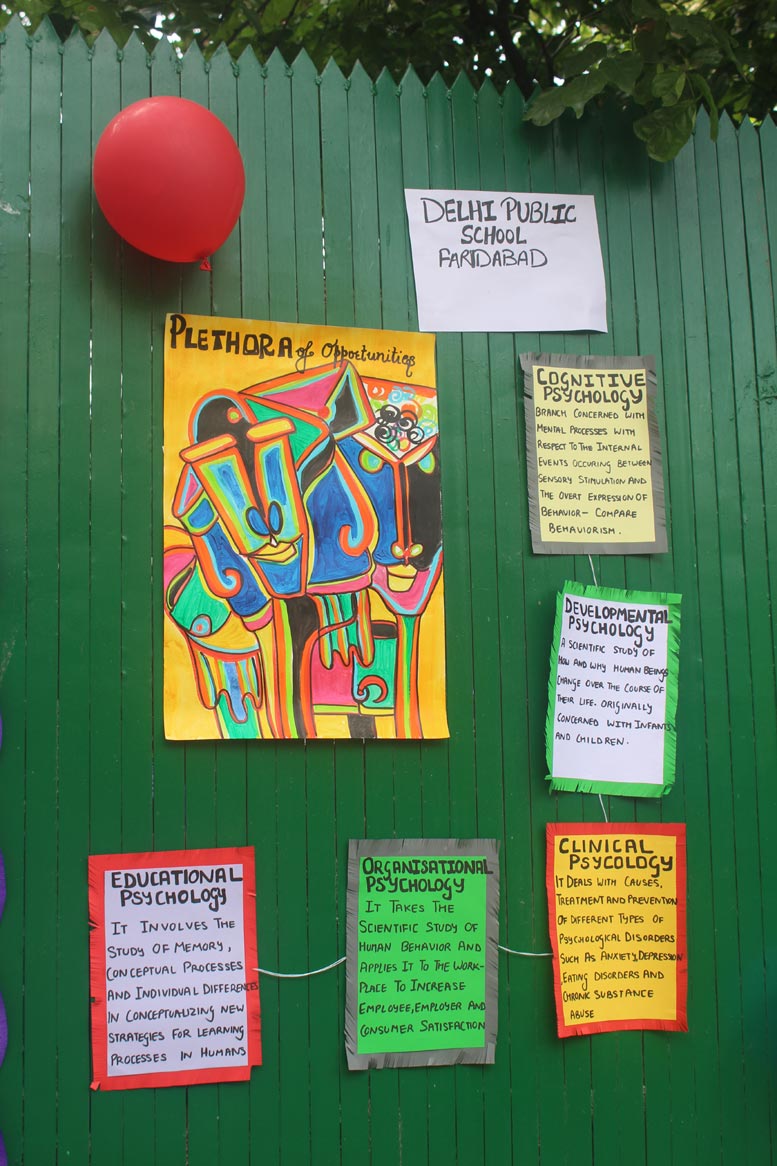 DELHI PUBLIC
SCHOOL
FARIDABAD
PLETHORA of Opportunities
COGNITIVE
PSYCHOLOGY
BRANCH CONCERNED WITH
MENTAL PROCESSES WITH
RESPECT TO THE INTERNAL
EVENTS OCCURING BETWEEN
SENSORY STIMULATION AND
THE OVERT EXPRESSION OF
BEHAVIOR- COMPARE
BEHAVIORISM.
DEVELOPMENTAL
PSYCHOLOGY
A SCIENTIFIC STUDY OF
HOW AND WHY HUMAN BEINGS
CHANGE OVER THE COURSE OF
THEIR LIFE. ORIGINALLY
CONCERNED WITH INFANTS
AND CHILDREN.
CLINICAL
PSYCOLOGY
IT DEALS WITH CAUSES,
TREATMENT AND PREVENTION
OF DIFFERENT TYPES OF
PSYCHOLOGICAL DISORDERS
SUCH AS ANXIETY, DEPRESSION
EATING DISORDERS AND
CHRONIC SUBSTANCE
ABUSE
ORGANISATIONAL
PSYCHOLOGY
IT TAKES THE
SCIENTIFIC STUDY OF
HUMAN BEHAVIOR AND
APPLIES IT TO THE WORK-
PLACE TO INCREASE
EMPLOYEE, EMPLOYER AND
CONSUMER SATISFACTION
EDUCATIONAL
PSYCHOLOGY
IT INVOLVES THE
STUDY OF MEMORY,
CONCEPTUAL PROCESSES
AND INDIVIDUAL DIFFERENCES
IN CONCEPTUALIZING NEW
STRATEGIES FOR LEARNING
PROCESSES IN HUMANS